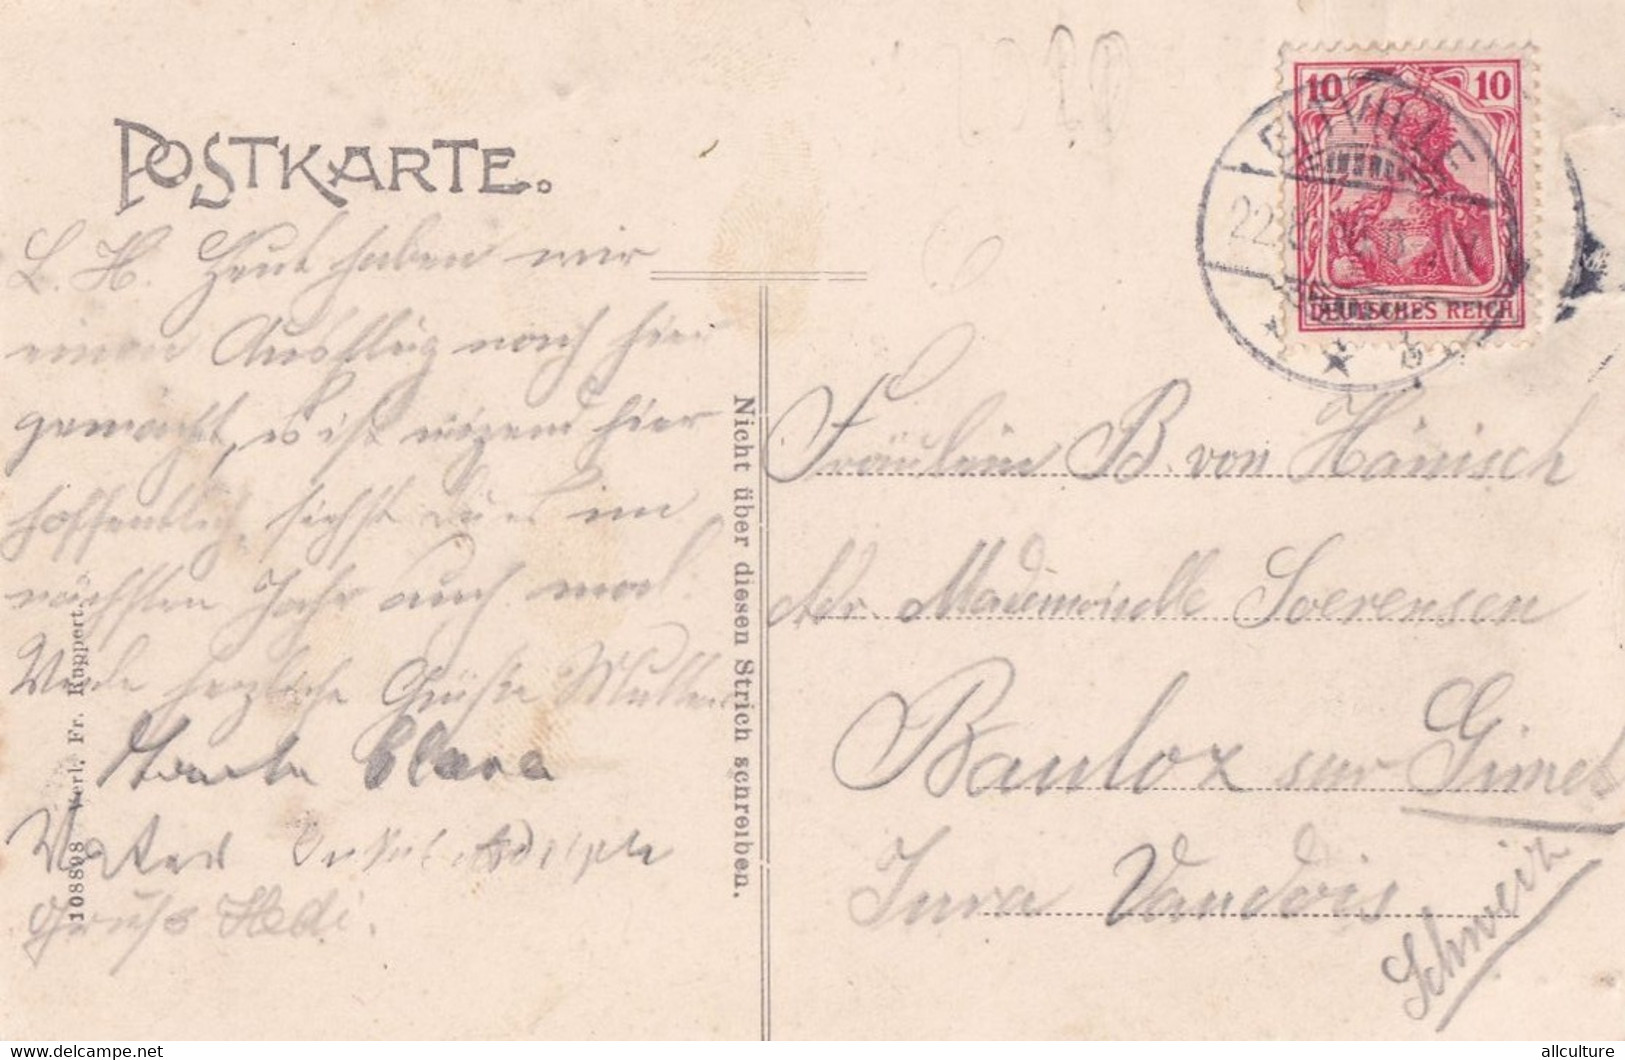 POSTKARTE.
L. H. Heut haben wir
einen Ausflug nach hier
gemacht, es ist reizend hier
hoffentlich siehst du es im
nächsten Jahr auch mal.
Viele herzliche Grüße
Tante Clara
Vater Onkel Adolph
Gruß Hedi.
108898 Verl. Fr. Ruppert.
Nicht über diesen Strich schreiben.
10 10
DEUTSCHES REICH
ELTVILLE
22.
Fräulein B. von Hänisch
Adr. Mademoiselle Soerensen
Baulox sur Gimel
Jura Vaudois
Schweiz
allculture